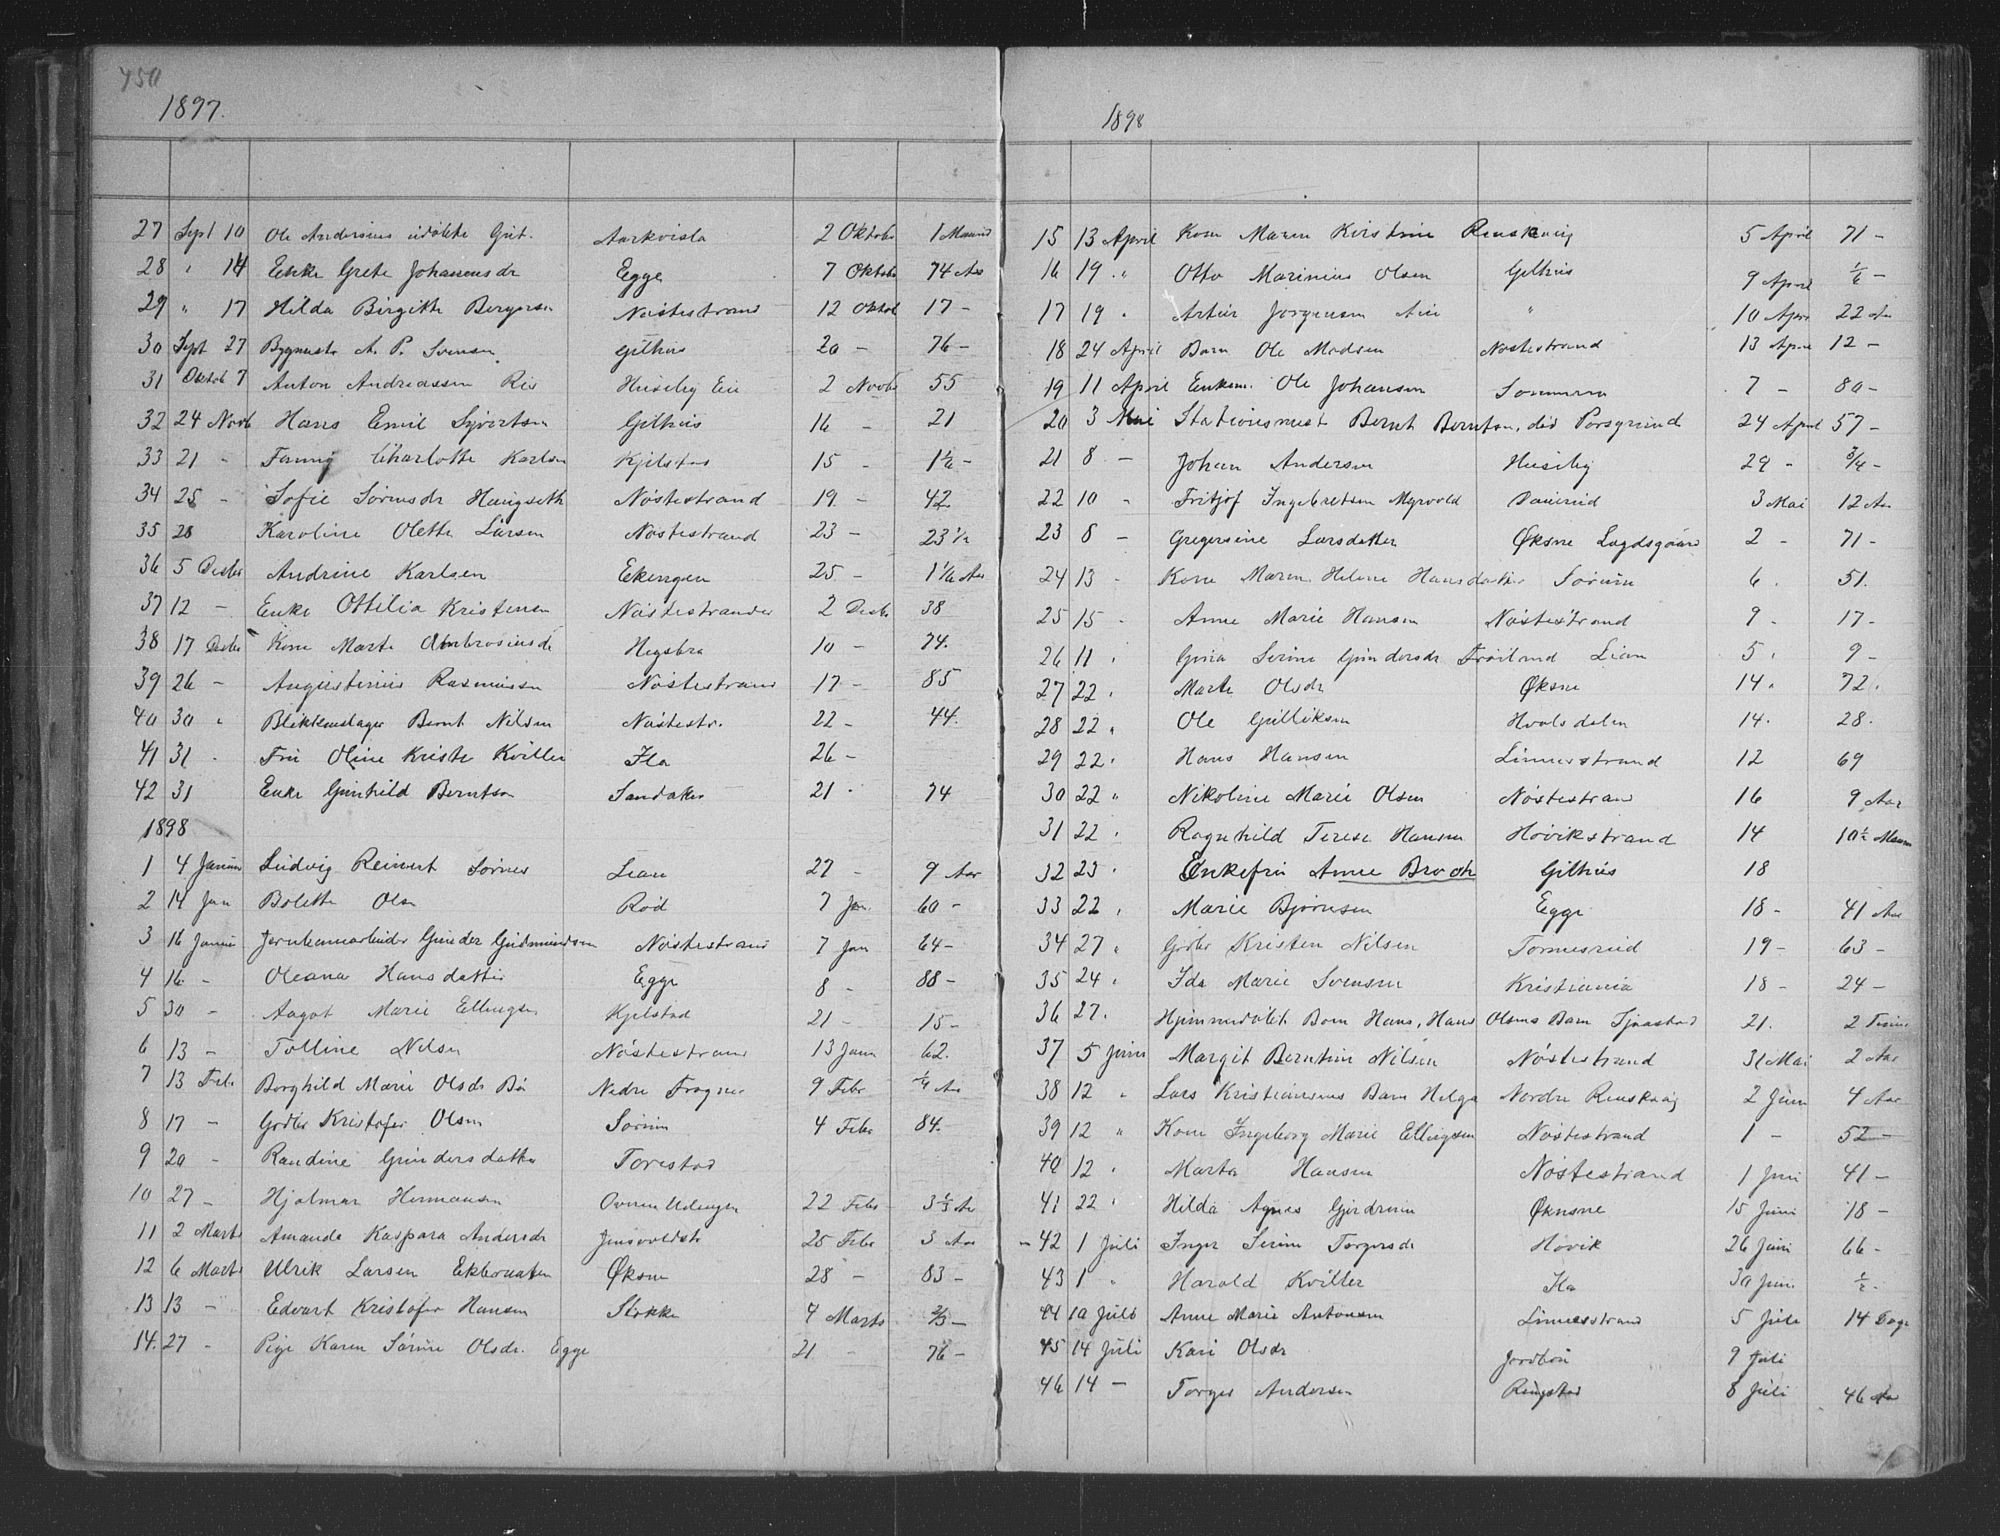 450
1897.
27 Sept 10 Ole Andersens udøbte Gut. Aarkvisla 2 Oktobr 1 Maaned
28 " 14 Enke Grete Johannesdr Egge 7 Oktobr 74 Aar
29 " 17 Hilda Birgitte Bergersen Nøstestrand 12 Oktob 17 -
30 Sept 27 A. P. Svensen Gilhus 20 - 76 -
31 Oktob 7 Anton Andreassen Ris Huseby Eie 2 Novbr 55
32 24 Novb Hans Emil Syvertsen Gilhus 16 - 21
33 21 - Fanny Charlotte Karlsen Kjelstad 15 - 1½ -
34 25 - Sofie Sørensdr Haugseth Nøstestrand 19 - 42
35 28 Karoline Olette Larsen Nøstestrand 23 - 23 ½
36 5 Decbr Andrine Karlsen Ekengen 25 - Aar
37 12 - Enke Ottilia Kristensen Nøstestranden 2 Decbr 38
38 17 Decbr Kone Marte Ambrosiusdr Hegsbro 10 - 74.
39 26 - Augustinus Rasmussen Nøstestrand 17 - 85
40 30 " Blikkenslager Bernt Nilsen Nøstestr. 22 - 44.
41 31 . Fru Oline Kristi Kviller Ila 26 -
42 31 Enke Gunhild Berntsen Sandaker 21 . 74
1898
1 4 Januar Ludvig Reinert Sørnes Lian 27 - 9 Aar
2 14 Jan Bolette Olsen Rød 7 Jan. 60 -
3 16 Januar Gunder Gudmundsen Nøstestrand 7 Jan 64 -
4 16 - Oleana Hansdatter Egge 8 - 88 -
5 30 - Aagot Marie Ellingsen Kjelstad 21 - 15 -
6 13 - Tolline Nilsen Nøstestrand 13 Janu 62.
7 13 Febr Borghild Marie Olsdr Bø Nedre Frogner 9 Febr ¼ Aar
8 17 - Gdbr Kristofer Olsen Sørum 4 Febr 84.
9 20 - Randine Gundersdatter Torestad
10 27 - Hjalmar Hermansen 22 Febr 3 ⅓ Aar
11 2 Marts Amanda Kaspara Andersdr 25 Febr 3 Aar
12 6 Marts Ulrik Larsen Ekbraaten Øksne 28 - 83 -
13 13 - Edvart Kristofer Hansen Stokke 4 Marts ⅔ -
14. 27 - Pige Karen Sørine Olsdr. Egge 21 - 76 -
1898
15 13 April Kone Maren Kirstine Renskaug 5 April 71 -
16 19 " Otto Marinius Olsen Gilhus 9 April ½ -
17 19 " Artur Jørgensen " 10 Apri 22 Aar
18 24 April Barn Ole Madsen Nøstestrand 13 April 12 -
19 11 April Enkem. Ole Johansen 7 - 80 -
20 3 Mai Stationsmest Bernt Berntsen, død Porsgrund 24 April 57 -
21 8 - Johan Andersen Huseby 29 - ¾ -
22 10 - Fritjof Ingebretsen Myrvold 3 Mai 12 Aar
23 8 - Gregersine Larsdatter Øksne Lægdsgaard 2 - 71 -
24 13 - Kone Maren Helene Hansdatter Sørum 6 . 51.
25 15 - Anne Marie Hansen Nøstestrand 9 - 17 -
26 11 . Gina Serine Gundersdr Frøiland Lian 5 . 9 -
27 22 " Marte Olsdr Øksne 14 " 72.
28 22 " Ole Gulliksen Hvalsdalen 14 . 28.
29 22 . Hans Hansen Linnesstrand 12 69
30 22 " Nikoline Marie Olsen Nøstestrand 16 9 Aar
31 22 . Ragnhild Terese Hansen Høvikstrand 14 10½ Maan
32 23 . Enkefru Anne Broch Gilhus 18
33 22 . Marie Bjørnsen Egge 18 - 41 Aar
34 27 " Gdbr Kristen Nilsen Tømmesrud 19 - 63 -
35 24 . Ida Marie Svensen Kristiania 18 - 24 -
36 27. Hjemmedøbt Barn Hans, Hans Olsens Barn Tjaastad 21. 2 Timer
37 5 Juni Margit Berntine Nilsen Nøstestrand 31 Mai 2 Aar
38 12 " Lars Kristiansens Barn Helga Nordre Renskaug 2 Juni 4 Aar
39 12 " Kone Ingeborg Marie Ellingsen Nøstestrand 1 - 52 -
40 12 . Marta Hansen Nøstestrand 1 Juni 41 -
41 22 . Hilda Agnes Gjørdrum Øknsne 15 Juni 18 -
- 42 1 Juli Inger Serine Torgersdr Høvik 26 Juni 66 -
43 1 " Harald Kviller Ila 30 Juni ½ -
44 10 Juli Anne Marie Antonsen Linnesstrand 5 Juli 14 Dage
45 14 Juli Kari Olsdr 9 Juli
46 14 - Torger Andersen Ringstad 8 Juli 46 Aar